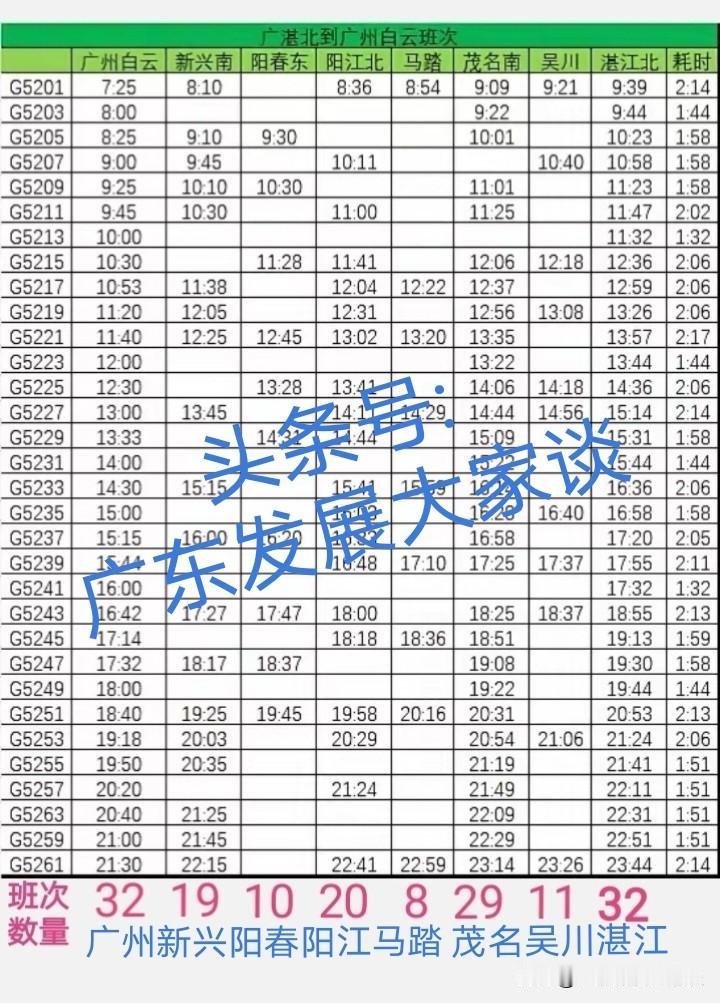 广湛北到广州白云班次
广州白云 新兴南 阳春东 阳江北 马踏 茂名南 吴川 湛江北 耗时
G5201 7:25 8:10 8:36 8:54 9:09 9:21 9:39 2:14
G5203 8:00 9:22 9:44 1:44
G5205 8:25 9:10 9:30 10:01 10:23 1:58
G5207 9:00 9:45 10:11 10:40 10:58 1:58
G5209 9:25 10:10 10:30 11:01 11:23 1:58
G5211 9:45 10:30 11:00 11:25 11:47 2:02
G5213 10:00 11:32 1:32
G5215 10:30 11:28 11:41 12:06 12:18 12:36 2:06
G5217 10:53 11:38 12:04 12:22 12:37 12:59 2:06
G5219 11:20 12:05 12:31 12:56 13:08 13:26 2:06
G5221 11:40 12:25 12:45 13:02 13:20 13:35 13:57 2:17
G5223 12:00 13:22 13:44 1:44
G5225 12:30 13:28 13:41 14:06 14:18 14:36 2:06
G5227 13:00 13:45 14:29 14:44 14:56 15:14 2:14
G5229 13:33 14:31 14:44 15:09 15:31 1:58
G5231 14:00 15:44 1:44
G5233 14:30 15:15 15:41 15:59 16:36 2:06
G5235 15:00 16:40 16:58 1:58
G5237 15:15 16:00 16:20 16:58 17:20 2:05
G5239 15:44 16:48 17:10 17:25 17:37 17:55 2:11
G5241 16:00 17:32 1:32
G5243 16:42 17:27 17:47 18:00 18:25 18:37 18:55 2:13
G5245 17:14 18:18 18:36 18:51 19:13 1:59
G5247 17:32 18:17 18:37 19:08 19:30 1:58
G5249 18:00 19:22 19:44 1:44
G5251 18:40 19:25 19:45 19:58 20:16 20:31 20:53 2:13
G5253 19:18 20:03 20:29 20:54 21:06 21:24 2:06
G5255 19:50 20:35 21:19 21:41 1:51
G5257 20:20 21:24 21:49 22:11 1:51
G5263 20:40 21:25 22:09 22:31 1:51
G5259 21:00 21:45 22:29 22:51 1:51
G5261 21:30 22:15 22:41 22:59 23:14 23:26 23:44 2:14
头条号:
广东发展大家谈
班次数量 32 19 10 20 8 29 11 32
广州新兴阳春阳江马踏 茂名吴川湛江